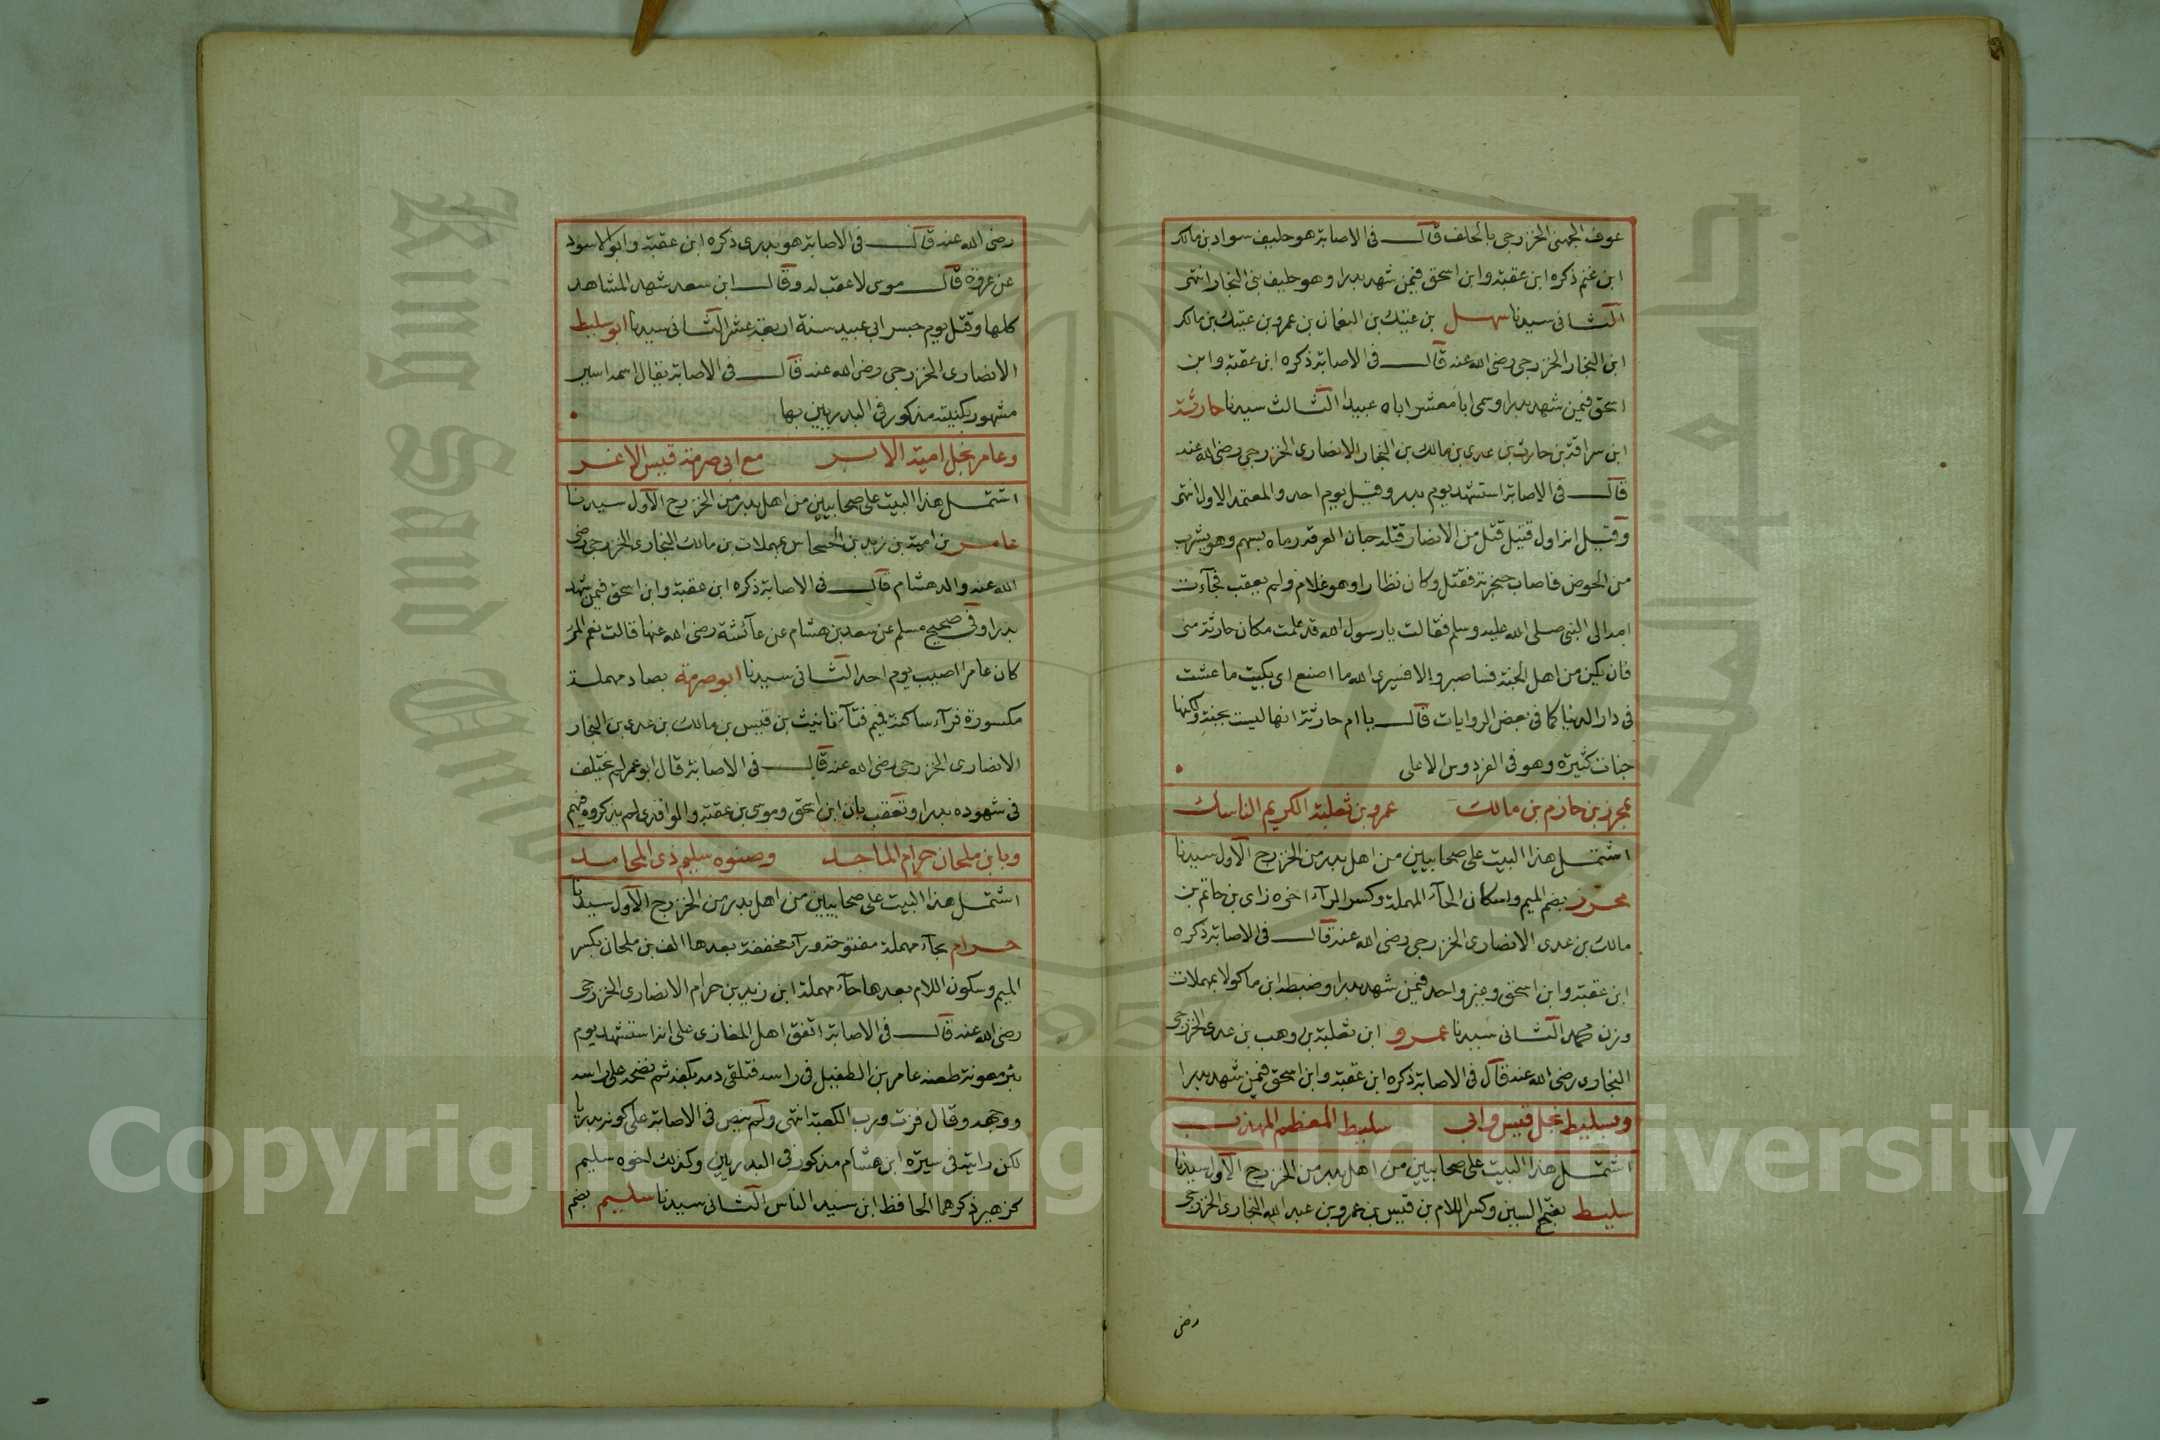 عوف الجهنى الخزرجى بالحلف قال فى الاصابة هو حليف سواد بن مالك
ابن غنم ذكره ابن عقبة وابن اسحق فيمن شهد بدرا وهو حليف بنى النجار انتهى
الثانى سيدنا سهل بن عتيك بن النعمان بن عمرو بن عتيك بن مالك
ابن النجار الخزرجى رضى الله عنه قال فى الاصابة ذكره ابن عقبة وابن
اسحق فيمن شهد بدرا وسمى ابا معشر اباه عبيدا الثالث سيدنا حارثة
ابن سراقة بن حارث بن عدى بن مالك بن النجار الانصارى الخزرجى رضى الله عنه
قال فى الاصابة استشهد يوم بدر وقيل يوم احد والمعتمد الاول انتهى
وقيل انه اول قتيل قتل من الانصار قتله حبان العرقة رماه بسهم وهو يشرب
من الحوض فاصاب حنجرته فقتل وكان نظارا وهو غلام ولم يعقب فجآءت
امه الى النبى صلى الله عليه وسلم فقالت يا رسول الله قد علمت مكان حارثة منى
فان يكن من اهل الجنة فساصبر والا فسيرى الله ما اصنع اى بكيت ما عشت
فى دار الدنيا كما فى بعض الروايات قال يا ام حارثة انها ليست بجنة ولكنها
جنات كثيرة وهو فى الفردوس الاعلى
بمحرز بن حازم بن مالك عمرو بن ثعلبة الكريم الناسك
اشتمل هذا البيت على صحابيين من اهل بدر من الخزرج الاول سيدنا
محرز بضم الميم واسكان الحآء المهملة وكسر الرآء اخره زاى بن حاتم بن
مالك بن عدى الانصارى الخزرجى رضى الله عنه قال فى الاصابة ذكره
ابن عقبة وابن اسحق وغير واحد فيمن شهد بدرا وضبطه ابن ماكولا بمهملات
وزن محمد الثانى سيدنا عمرو ابن ثعلبة بن وهب بن عدى الخزرجى
النجارى رضى الله عنه قال فى الاصابة ذكره ابن عقبة وابن اسحق فيمن شهد بدرا
وبسليط نجل قيس وابى سليط المعظم المهذب
اشتمل هذا البيت على صحابيين من اهل بدر من الخزرج الاول سيدنا
سليط بفتح السين وكسر اللام بن قيس بن عمرو بن عبد الله النجارى الخزرجى
رضى
رضى الله عنه قال فى الاصابة هو بدرى ذكره ابن عقبة وابو الاسود
عن عروة قال موسى لا عقب له وقال ابن سعد شهد المشاهد
كلها وقتل يوم جسر ابى عبيد سنة اربعة عشر الثانى سيدنا ابو سليط
الانصارى الخزرجى رضى الله عنه قال فى الاصابة يقال اسمه اسير
مشهور بكنيته مذكور فى البدريين بها
وعامر نجل امية الابر مع ابى صرمة قيس الاغر
اشتمل هذا البيت على صحابيين من اهل بدر من الخزرج الاول سيدنا
عامر بن امية بن زيد بن الحسحاس بمهملات بن مالك النجارى الخزرجى رضى
الله عنه والد هشام قال فى الاصابة ذكره ابن عقبة وابن اسحق فيمن شهد
بدرا وفى صحيح مسلم عن سعد بن هشام عن عآئشة رضى الله عنها قالت نعم المرء
كان عامرا اصيب يوم احد الثانى سيدنا ابو صرمة بصاد مهملة
مكسورة فرآء ساكنة فميم فتآء تانيث بن قيس بن مالك بن عدى بن النجار
الانصارى الخزرجى رضى الله عنه قال فى الاصابة قال ابو عمر لم يختلف
فى شهوده بدرا وتعقب بان ابن اسحق وموسى بن عقبة والواقدى لم يذكروه فيهم
وبابن ملحان حرام الماجد وصنوه سليم ذى المحامد
اشتمل هذا البيت على صحابيين من اهل بدر من الخزرج الاول سيدنا
حرام بحآء مهملة مفتوحة ورآء مخففة بعدها الف بن ملحان بكسر
الميم وسكون اللام بعدها حآء مهملة ابن زيد بن حرام الانصارى الخزرجى
رضى الله عنه قال فى الاصابة اتفق اهل المغازى على انه استشهد يوم
بئر معونة طعنه عامر بن الطفيل فى راسه فتلقى دمه بكفه ثم نضحه على راسه
ووجهه وقال فزت ورب الكعبة انتهى ولم ينص فى الاصابة على كونه بدريا
لكن رايته فى سيرة ابن هشام مذكور فى البدريين وكذلك اخوه سليم
ذكرهما الحافظ ابن سيد الناس الثانى سيدنا سليم بضم
Copyright © King Saud University
King Saud University
1957